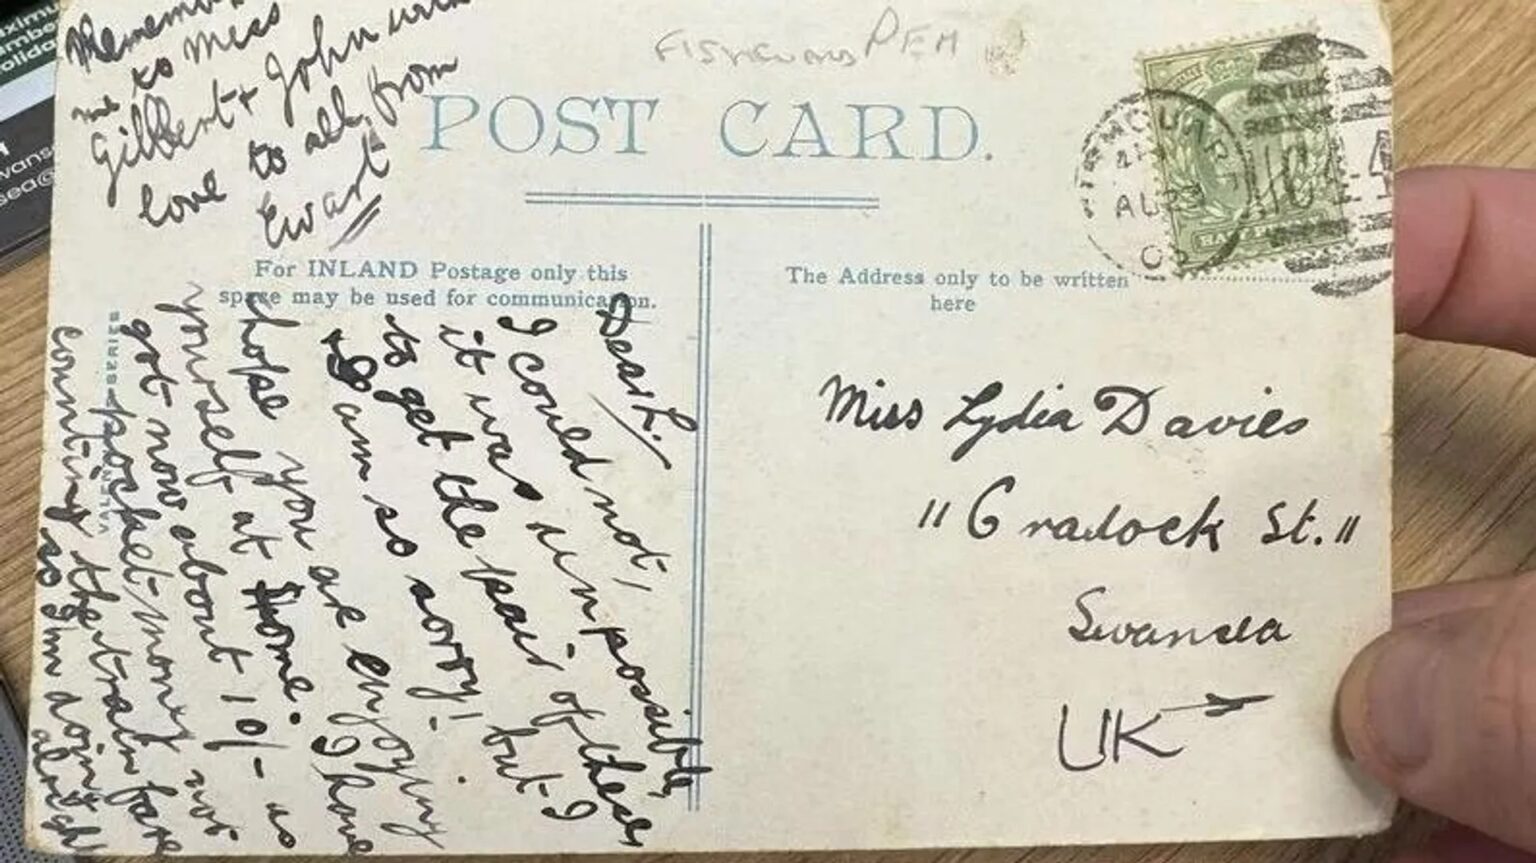 to miss
Gilbert & John with
love to all from
Ewart
FISHGUARD PEM
POST CARD.
For INLAND Postage only this
space may be used for communication.
The Address only to be written
here
AU 23
HALFPENNY
Dear L.
I could not,
it was unpossible,
to get the pair of these
I am so sorry! but I
hope you are enjoying
yourself at Home. I have
got now about 10/- as
pocket-money not
counting the train fare
so I'm doing alright
Miss Lydia Davies
"Cradock St."
Swansea
UK